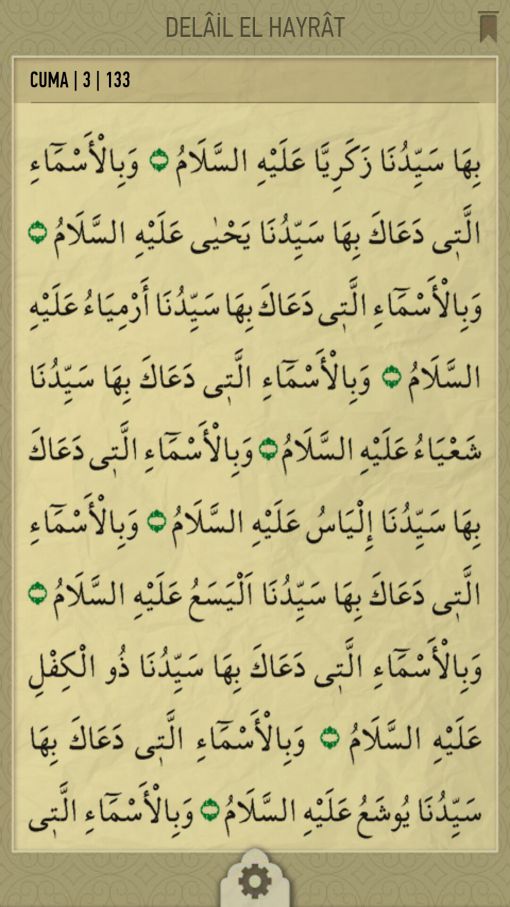 DELÂİL EL HAYRÂT
CUMA | 3 | 133
بِهَا سَيِّدُنَا زَكَرِيَّا عَلَيْهِ السَّلَامُ ۝ وَبِالْأَسْمَٓاءِ
الَّتٖى دَعَاكَ بِهَا سَيِّدُنَا يَحْيٰى عَلَيْهِ السَّلَامُ ۝
وَبِالْأَسْمَٓاءِ الَّتٖى دَعَاكَ بِهَا سَيِّدُنَا أَرْمِيَاءُ عَلَيْهِ
السَّلَامُ ۝ وَبِالْأَسْمَٓاءِ الَّتٖى دَعَاكَ بِهَا سَيِّدُنَا
شَعْيَاءُ عَلَيْهِ السَّلَامُ ۝ وَبِالْأَسْمَٓاءِ الَّتٖى دَعَاكَ
بِهَا سَيِّدُنَا إِلْيَاسُ عَلَيْهِ السَّلَامُ ۝ وَبِالْأَسْمَٓاءِ
الَّتٖى دَعَاكَ بِهَا سَيِّدُنَا اَلْيَسَعُ عَلَيْهِ السَّلَامُ ۝
وَبِالْأَسْمَٓاءِ الَّتٖى دَعَاكَ بِهَا سَيِّدُنَا ذُو الْكِفْلِ
عَلَيْهِ السَّلَامُ ۝ وَبِالْأَسْمَٓاءِ الَّتٖى دَعَاكَ بِهَا
سَيِّدُنَا يُوشَعُ عَلَيْهِ السَّلَامُ ۝ وَبِالْأَسْمَٓاءِ الَّتٖى